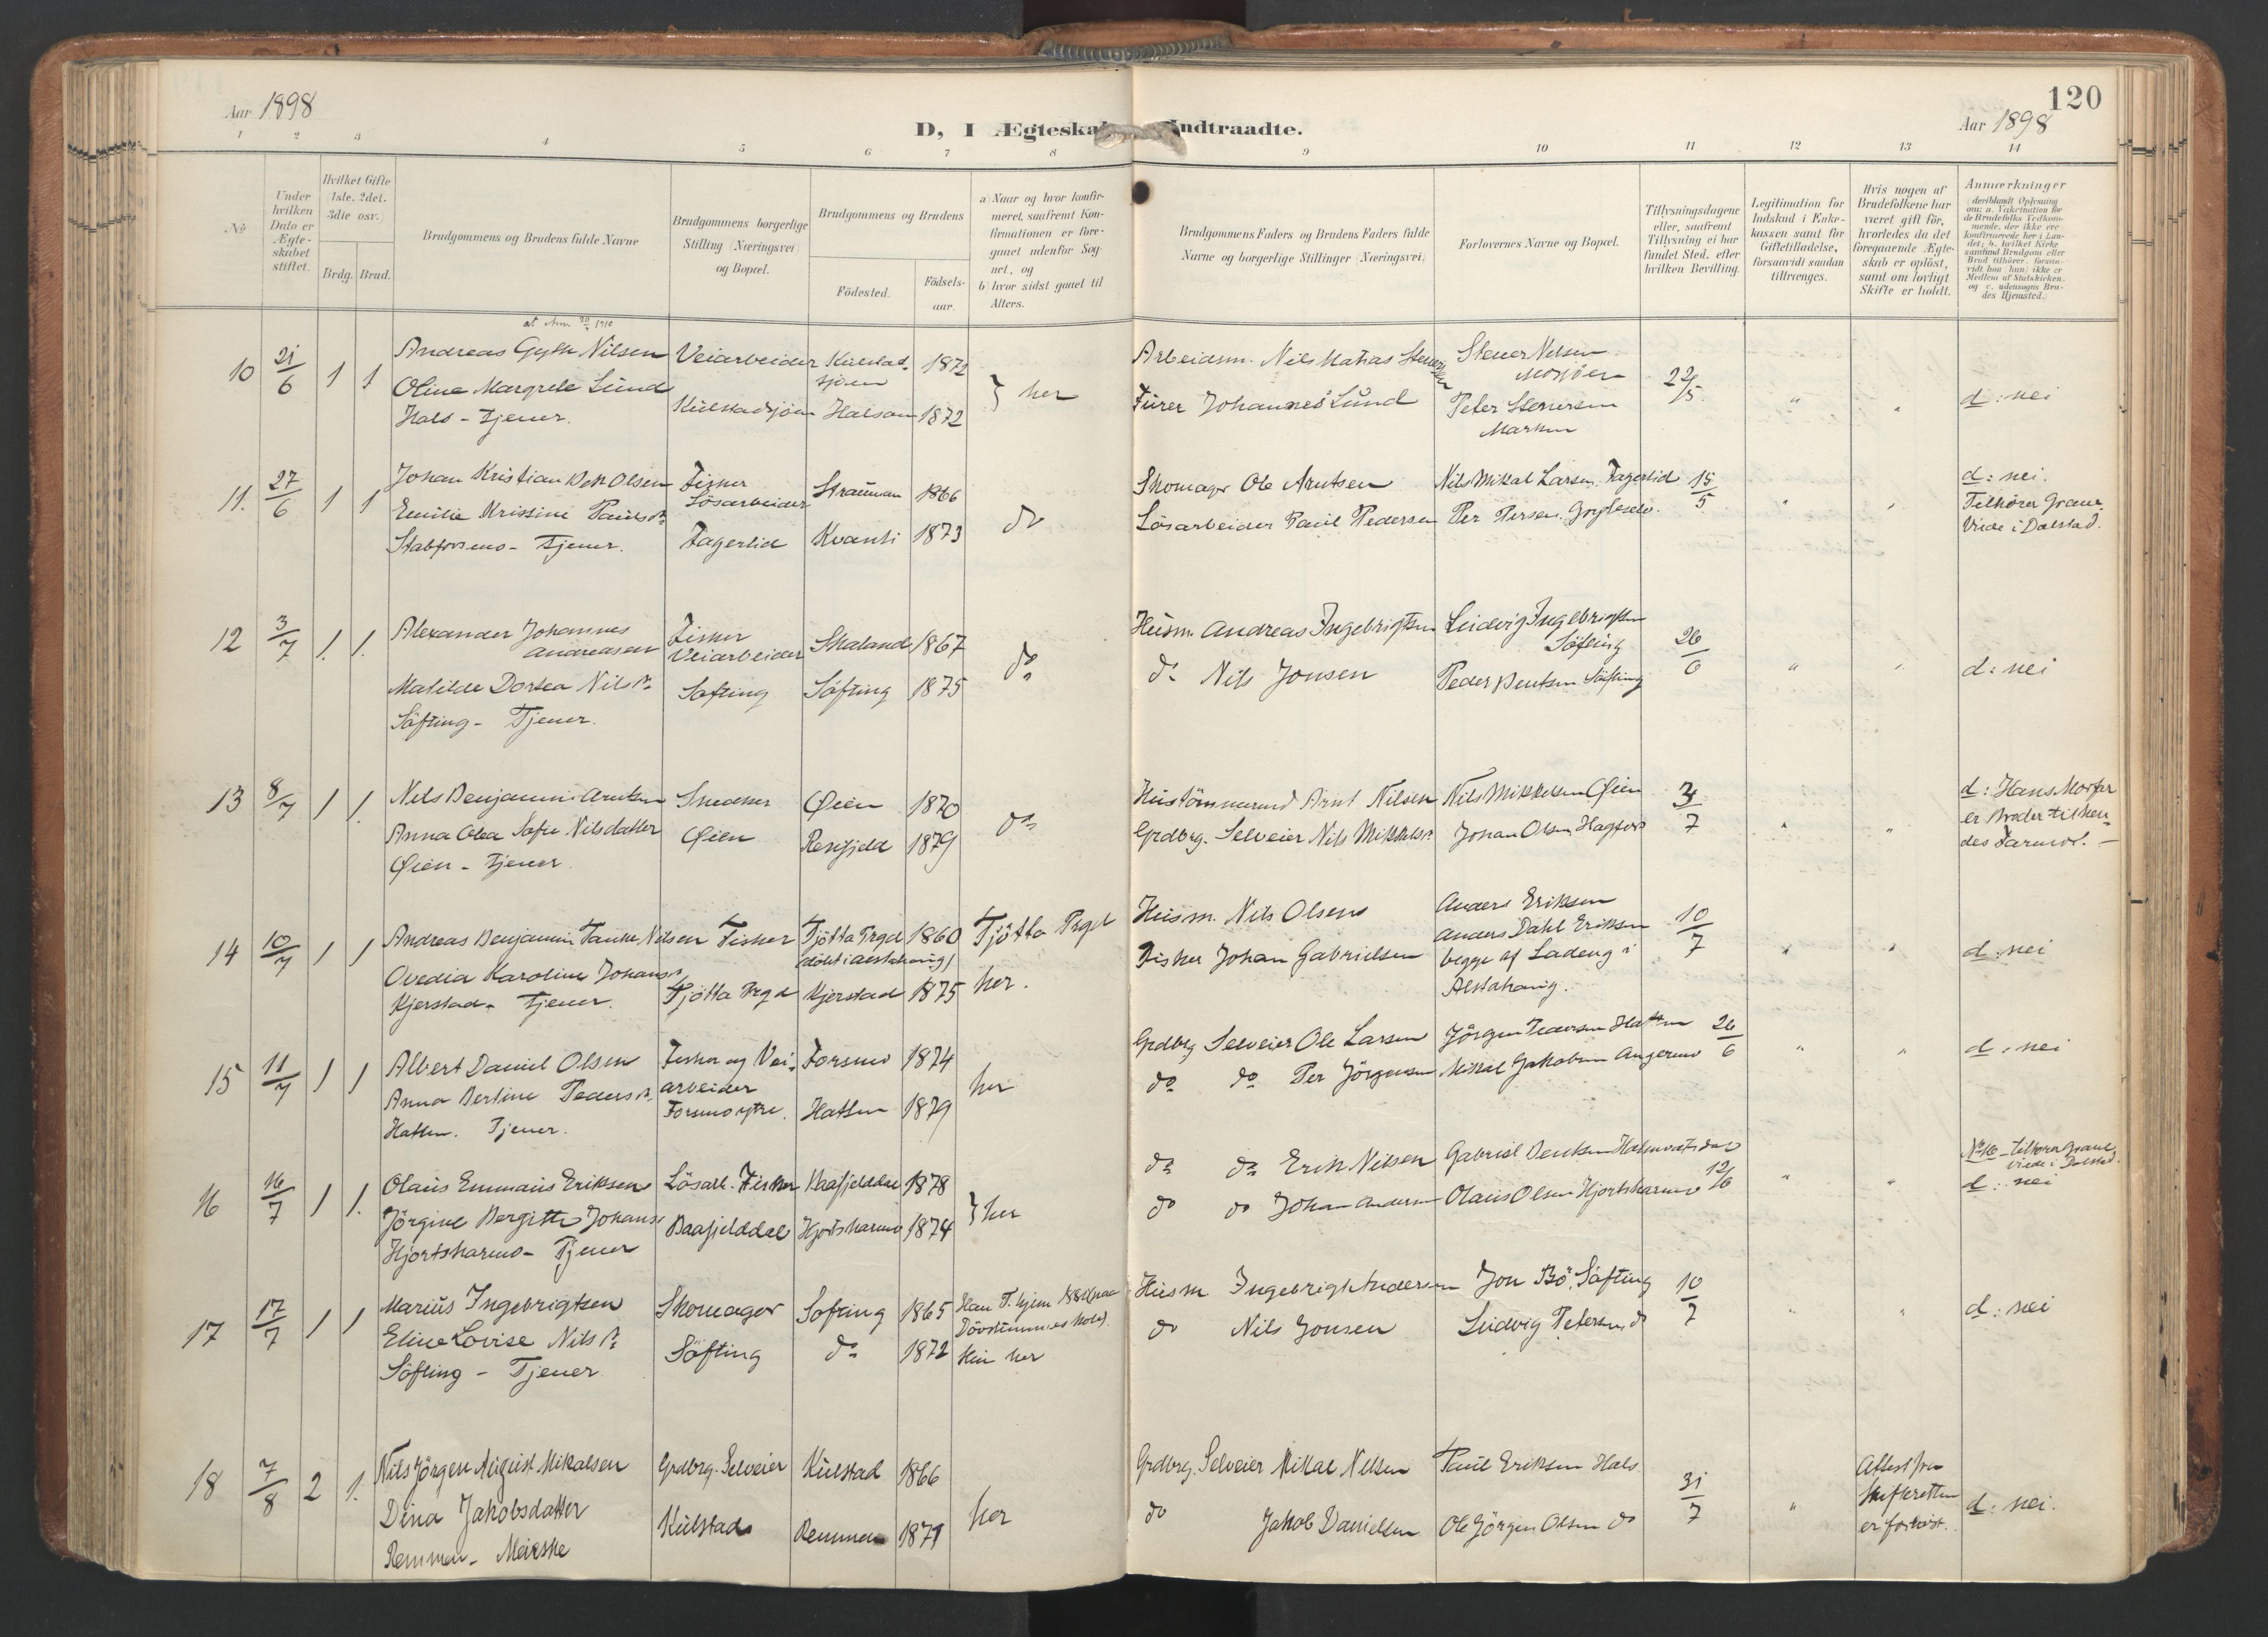 120
Aar 1898
D, I Ægteskab Indtraadte.
Aar 1898
1 2 3 4 5 6 7 8 9 10 11 12 13 14
No
Under hvilken Dato er Ægteskabet stiftet.
Hvilket Gifte (1ste. 2det. 3die osv.)
Brdg. Brud.
Brudgommens og Brudens fulde Navne
Brudgommens borgerlige Stilling (Næringsvei) og Bopæl.
Brudgommens og Brudens
Fødested.
Fødselsaar.
a) Naar og hvor konfirmeret, saafremt Konfirmationen er foregaaet udenfor Sognet, og
b) hvor sidst gaaet til Alters.
Brudgommens Faders og Brudens Faders fulde Navne og borgerlige Stillinger (Næringsvei).
Forlovernes Navne og Bopæl.
Tillysningsdagene eller, saafremt Tillysning ei har fundet Sted, efter hvilken Bevilling.
Legitimation for Indskud i Enkekassen samt for Giftetilladelse, forsaavidt saadan tiltrænges.
Hvis nogen af Brudefolkene har været gift før, hvorledes da det foregaaende Ægteskab er opløst, samt om lovligt Skifte er holdt.
Anmærkninger (deriblandt Oplysning om: a. Vakcination for de Brudefolks Vedkommende, der ikke ere konfirmerede her i Landet; b. hvilket Kirkesamfund Brudgom eller Brud tilhører, forsaavidt han (hun) ikke er Medlem af Statskirken, og c. udensogns Brudes Hjemsted.)
10 21/6 1 1 Andreas Gyth Nilsen Veiarbeider Kulstadsjøen 1872 Arbeidsm. Nils Matias Stenersen Stener Nilsen Mosjøen 22/5 " " d: nei
Oline Margrete Lund Kulstadsjøen Halsan 1872 } her Furer Johannes Lund Peter Stenersen Marken
Hals - Tjener.
11. 27/6 1 1 Johan Kristian Olsen Fisker Løsarbeider Strauman 1866 do Skomager Ole Arntsen Nils Mikal Larsen Fagerlid 15/5 " " d: nei.
Emilie Kristine Paulsd. Fagerlid Kvanli 1873 Løsarbeider Paul Pedersen Per Persen. Tilhører Grane.
Tjener. Viede i Dolstad.
12 3/7 1. 1. Alexander Johannes Andreasen Fisker Veiarbeider Skaland 1867 do Husm. Andreas Ingebrigtsen Ludvig Ingebrigtsen Søfting 26/6 " " d: nei
Matilde Dortea Nilsd. Søfting Søfting 1875 do Nils Jonsen Peder Bentsen Søfting
Søfting - Tjener.
13 8/7 1 1. Nils Benjamin Arntsen Snedker Øien 1870 do Hustømmermd Arnt Nilsen Nils Mikkelsen Øien 3/7 " " d: Hans Morfar
Anna Olea Sofie Nilsdatter Øien Renfjeld 1879 Grdbrg. Selveier Nils Mikkels. Johan Olsen Hagfors er Broder til hen-
Øien - Tjener. des Farmor. -
14 10/7 1 1 Andreas Benjamin Tanke Nilsen Fisker Tjøtta Prgd 1860 Tjøtta Prgd Husm. Nils Olsen Anders Eriksen 10/7 " " d: nei
(døbt i Alstahaug) Anders Dahl Eriksen
Ovedia Karoline Johansd. Tjøtta Prgd Kjerstad 1875 her. Fisker Johan Gabrielsen begge af Ladeng i
Kjerstad - Tjener. Alstahaug.
15 11/7 1 1 Albert Daniel Olsen Fisker og Vei- arbeider Forsmo 1874 her Grdbrg Selveier Ole Larsen Jørgen Pedersen Hatten 26/6 " " d: nei
Anna Bertine Pedersd. Forsmo ytre. Hatten 1879 do do Per Jørgensen Mikal Jakobsen Angermo
Hatten. Tjener.
16 16/7 1 1. Olaus Emmaus Eriksen Løsarb. Fisker Baafjelddal 1878 } her do do Erik Nilsen Gabriel Bentsen 12/6 " " No 16 - tilhører Grane, viede i Dolstad.
Jørgine Bergitte Johansd. Baafjelddal Hjortskarmo 1874 do do Johan Andersen Olaus Olsen Hjortskarmo d: nei
Hjortskarmo - Tjener
17 17/7 1 1 Marius Ingebrigtsen Skomager Søfting 1865 Han T.hjem Døvstummeskole). Husm Ingebrigt Andersen Jon Bø, Søfting 10/7 " " d: nei
Eline Lovise Nilsd. Søfting do 1872 Hun her do Nils Jonsen Ludvig Petersen do
Søfting - Tjener
18 7/8 2 1. Nils Jørgen August Mikalsen Grdbrg. Selveier Kulstad 1866 her Grdbrg. Selveier Mikal Nilsen Paul Eriksen Hals 31/7 " Attest fra Skifteretten er forevist. d: nei.
Dina Jakobsdatter Kulstad Remmen 1871 do Jakob Danielsen Ole Jørgen Olsen do
Remmen - Meierske